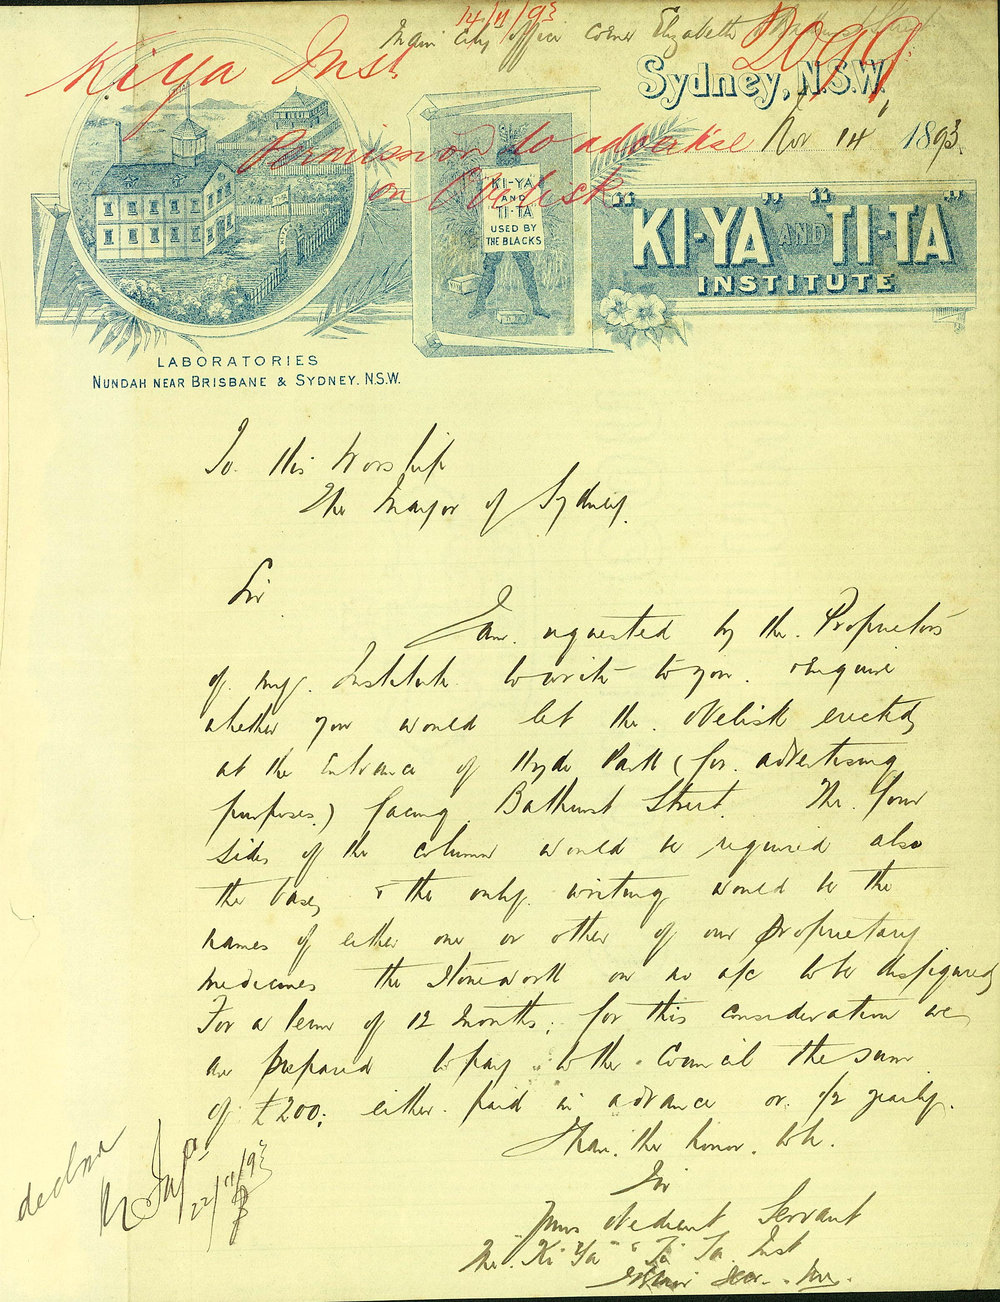 14/11/93
Main City Office Corner Elizabeth Street
2099
Kiya Inst
Sydney, N.S.W.
Permission to advertise
Nov 14 1893.
on Obelisk
KI-YA
AND
TI-TA
USED BY
THE BLACKS
"KI-YA" AND "TI-TA"
INSTITUTE
LABORATORIES
NUNDAH NEAR BRISBANE & SYDNEY. N.S.W.
To His Worship
The Mayor of Sydney.
Sir
I am requested by the Proprietors
of my Institute to write to you & enquire
whether you would let the Obelisk erected
at the Entrance of Hyde Park (for advertising
purposes.) facing Bathurst Street. The four
sides of the column would be required also
the base, & the only writing would be the
names of either one or other of our Proprietary
medicines the Stonework on no a/c to be disfigured
For a term of 12 months; for this consideration we
are prepared to pay to the Council the sum
of £200: either paid in advance or 1/2 yearly.
I have the honor to be.
Sir
Your obedient Servant
The "Ki Ya" & Ti Ta Inst
decline
22/11/93